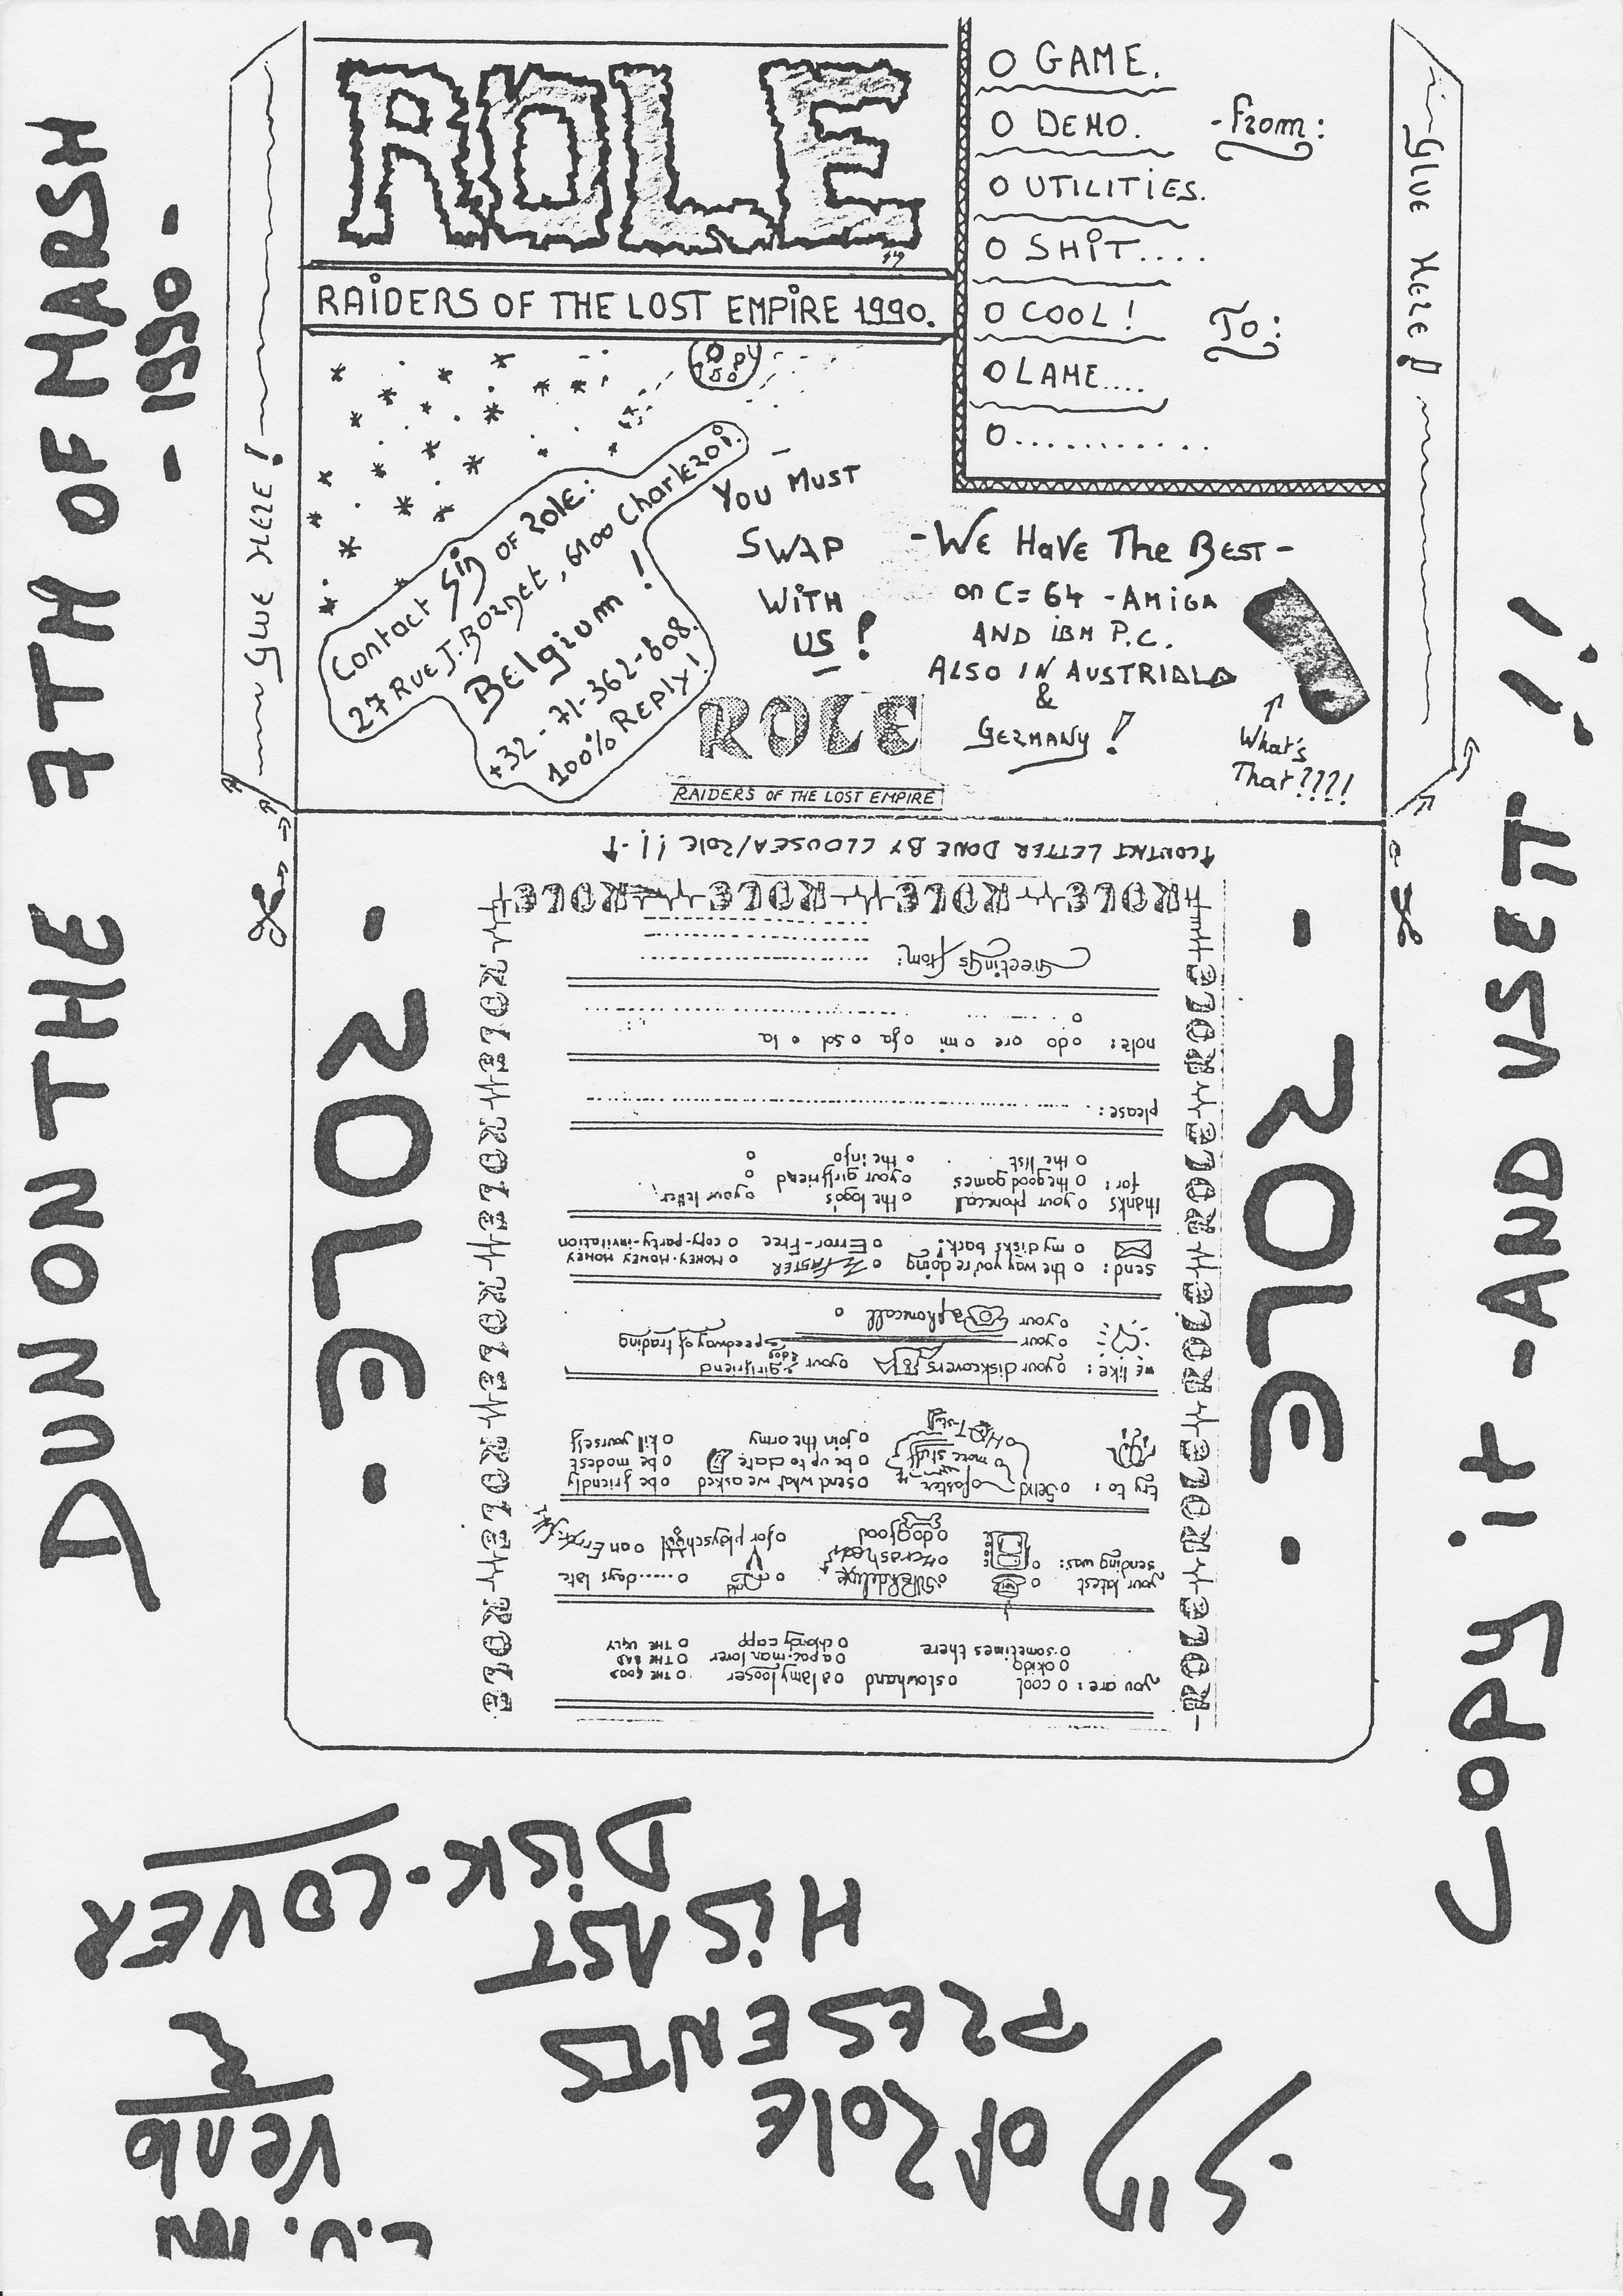 DUN ON THE 7TH OF MARSH
- 1990 -
GLUE HERE!
ROLE
RAIDERS OF THE LOST EMPIRE 1990.
O GAME.
O DEMO.
O UTILITIES.
O SHIT....
O COOL!
O LAME....
O...........
-from:
To:
GLUE HERE!
Contact Sig OF ROLE:
27 RUE J. BORNET, 6100 Charleroi.
BElgium!
+32-71-362-808.
100% REPLY!
YOU MUST
SWAP
WITH
US!
ROLE
RAIDERS OF THE LOST EMPIRE
-WE HAVE THE BEST-
on C=64 -AMIGA
AND IBM P.C.
ALSO IN AUSTRIALA
&
GERMANY!
What's
That????!
CONTACT LETTER DONE BY CLOUSEA/ROLE !!
- ROLE -
- ROLE -
ROLE ROLE ROLE ROLE
you are: o cool o slowhand o a lamy looser o THE GOOD
o okido o a pac-man lover o THE BAD
o sometimes there o chandy capp o THE UGLY
your latest o o o ......days late
sending was: o o crashed o for playschool o an Error
o dogfood
try to: o send o faster o send what we asked o be friendly
o more stuff o be up to date o be modest
o HOT-stuff o join the army o kill yourself
we like: o your diskcovers o your girlfriend
o your speedway of trading
o your phonecall o
send: o the way you're doing o FASTER o MONEY-MONEY MONEY
o my disks back! o Error-Free o copy-party-invitation
thanks o your phonecall o the logo's o your letter
for: o the good games o your girlfriend o
o the list o the info o
please: ..............................
note: o do o re o mi o fa o sol o la
o ..............................
Greetings from: ....................
COPY it - AND USE IT !!
Sig OF Role
PRESENTS
HIS
DISK-COVER